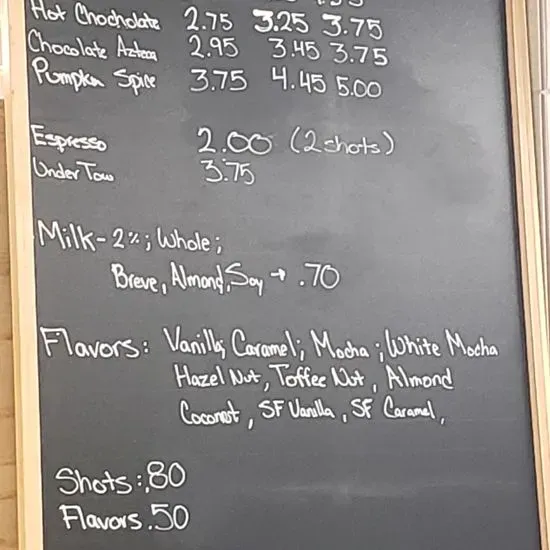 Hot Chocholate 2.75 3.25 3.75
Chocolate Azteca 2.95 3.45 3.75
Pumpkin Spice 3.75 4.45 5.00
Espresso 2.00 (2 shots)
Under Tow 3.75
Milk - 2%; Whole;
Breve, Almond, Soy → .70
Flavors: Vanilla, Caramel; Mocha; White Mocha
Hazel Nut, Toffee Nut, Almond
Coconut, SF Vanilla, SF Caramel,
Shots: .80
Flavors .50